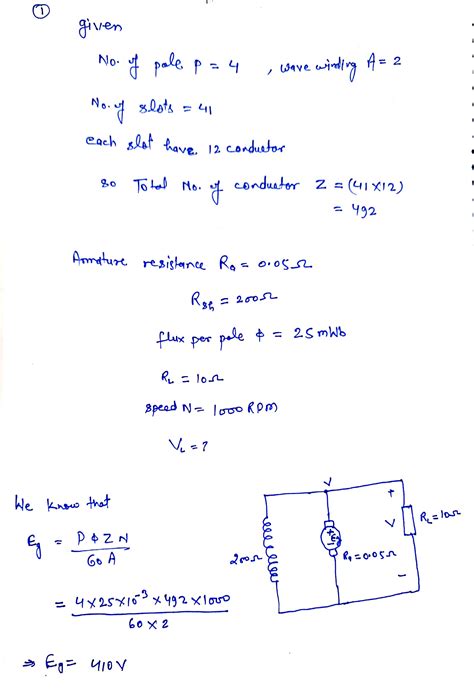 ①
given
No. of pole P = 4 , wave winding A = 2
No. of slots = 41
each slot have 12 conductor
so Total No. of conductor Z = (41×12)
= 492
Armature resistance Ra = 0.05Ω
Rsh = 200Ω
flux per pole ϕ = 25 mWb
RL = 10Ω
speed N = 1000 RPM
VL = ?
We know that
Eg = PϕZN / 60A
= 4×25×10⁻³×492×1000 / 60×2
⇒ Eg = 410V
V
+
200Ω
+ Eg −
Ra = 0.05Ω
V
RL = 10Ω
−